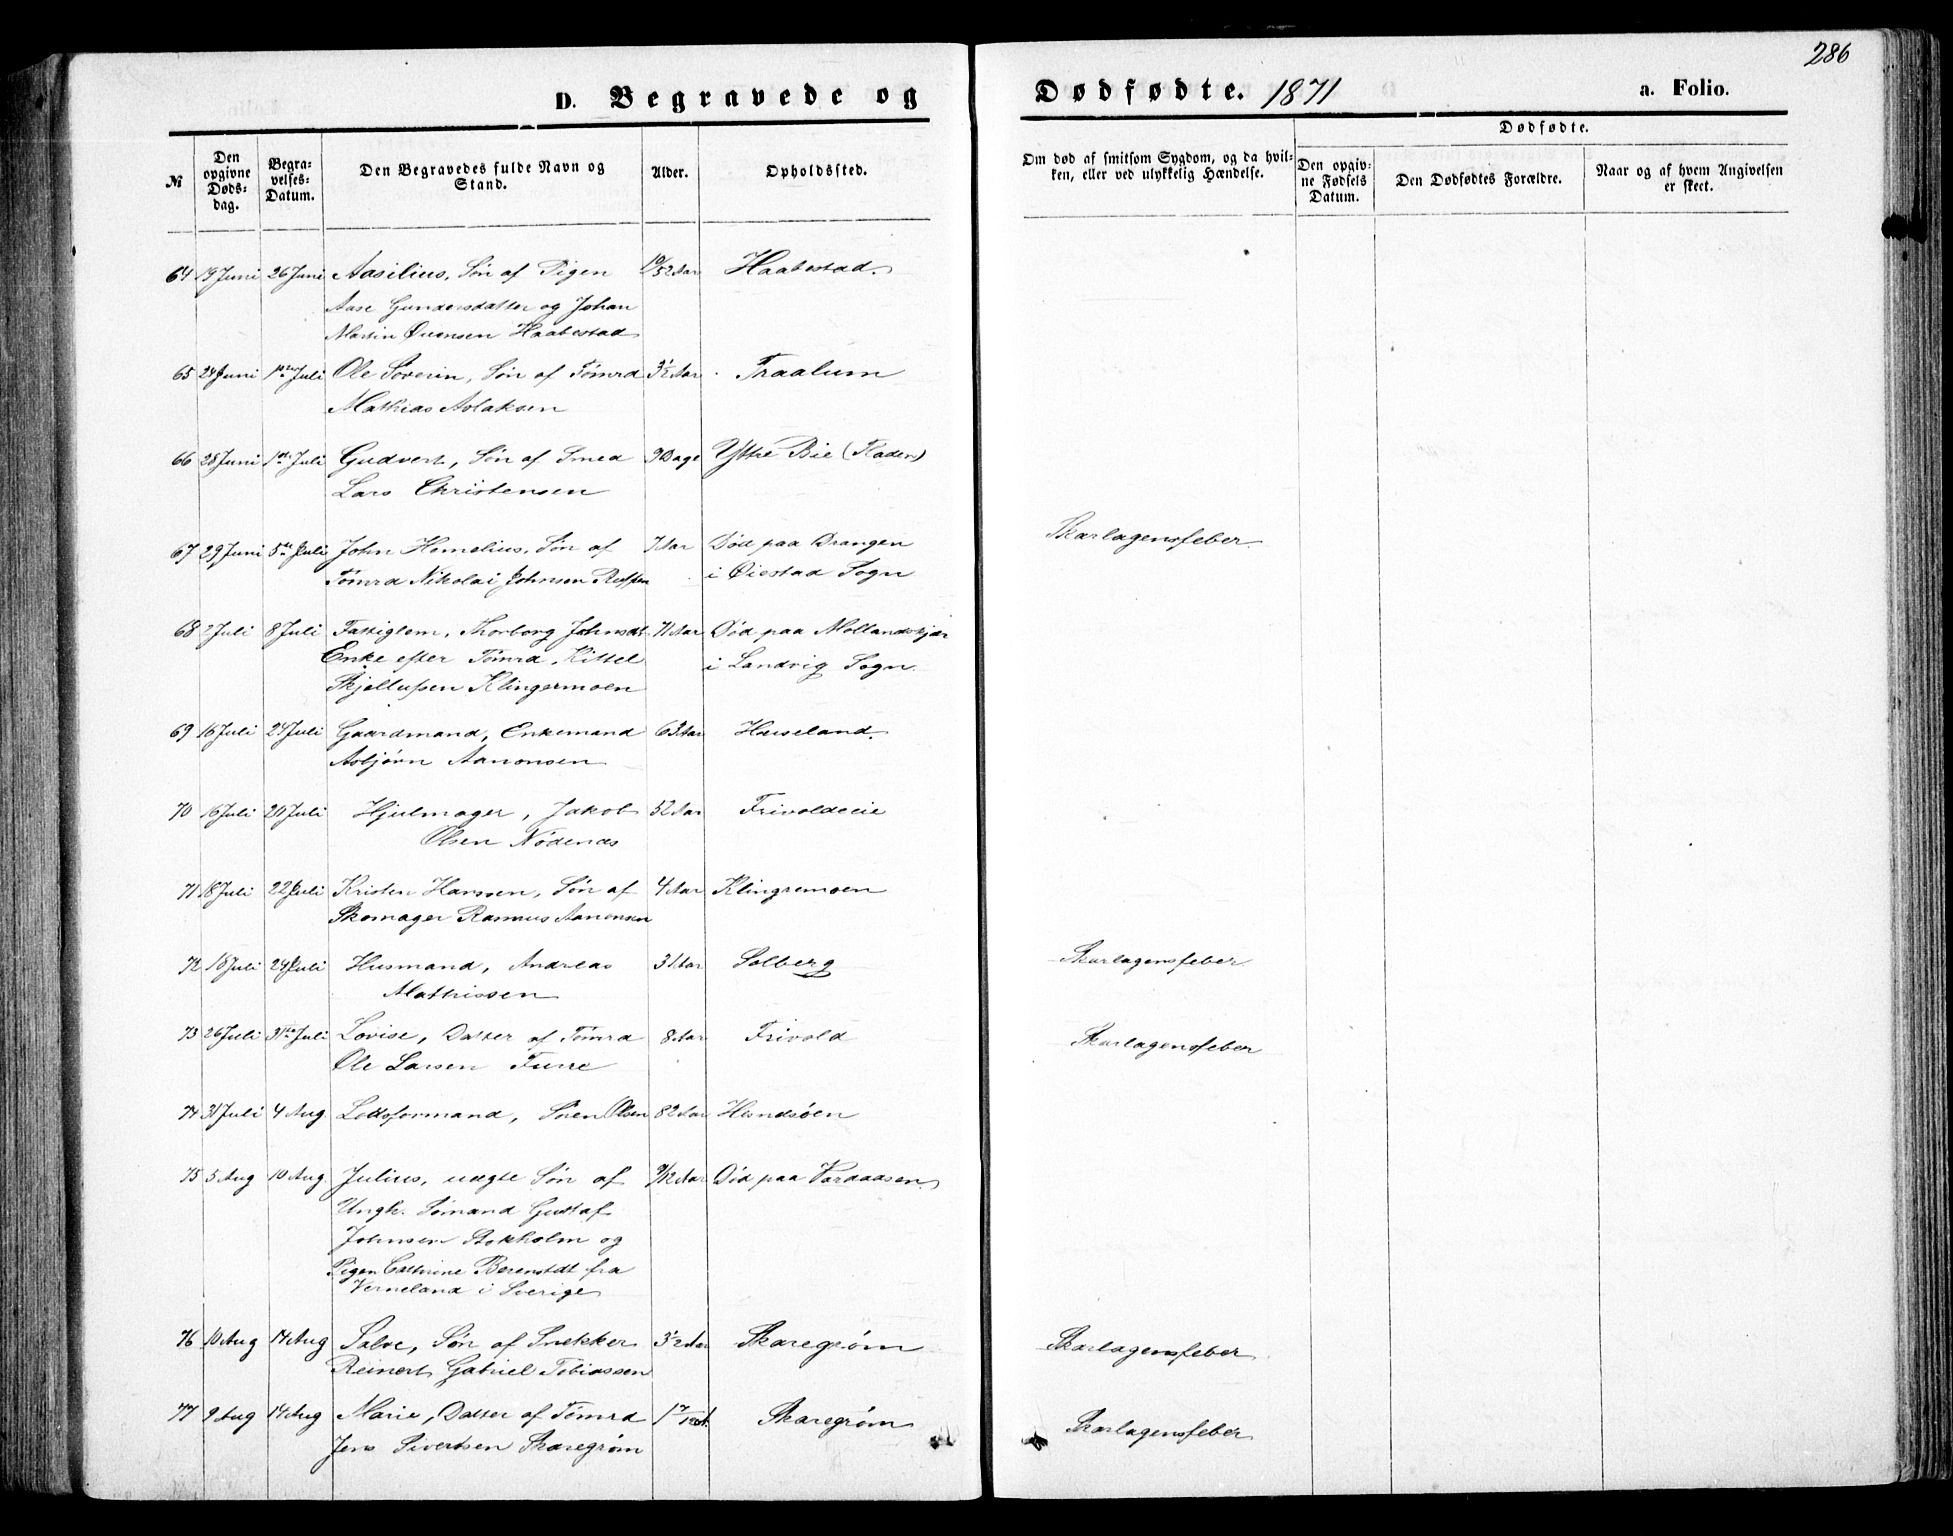 286
D. Begravede og Dødfødte. 1871 a. Folio.
№ Den opgivne Døds-dag. Begra-velses-Datum. Den Begravedes fulde Navn og Stand. Alder. Opholdssted. Om død af smitsom Sygdom, og da hvil-ken, eller ved ulykkelig Hændelse. Dødfødte. Den opgiv-ne Fødsels Datum. Den Dødfødtes Forældre. Naar og af hvem Angivelsen er skeet.
64 19 Juni 26 Juni Aasilius, Søn af Pigen 10/52 Aar Haabestad.
Aase Gundersdatter og Johan
Martin Evensen Haabestad
65 24 Juni 1ste Juli Ole Severin, Søn af Tømrd 3½ Aar Traalum
Mathias Aslaksen
66 28 Juni 1ste Juli Gudvert, Søn af Smed 9 Dage Yttre Bie (Fladen)
Lars Christensen
67 29 Juni 5te Juli John Hemelius, Søn af 7 Aar Død paa Drangen Skarlagensfeber
Tømrd Nikolai Johnsen i Øiestad Sogn
68 2 Juli 8 Juli Fattiglem, Thorborg Johnsdt 71 Aar Død paa Mollandskjær
Enke efter Tømrd. Kittel i Landvig Sogn.
Skjellufsen Klingermoen
69 16 Juli 24 Juli Gaardmand, Enkemand 63 Aar Hæseland.
Asbjørn Aanonsen
70 16 Juli 20 Juli Hjulmager, Jakob 52 Aar Frivoldeeie
Olsen Nødenæs
71 18 Juli 22 Juli Kristen Hansen, Søn af 4 Aar Klingremoen
Skomager Rasmus Aanonsen
72 18 Juli 24 Juli Husmand, Andreas 31 Aar Solberg Skarlagensfeber
Mathissen
73 26 Juli 31te Juli Lovise, Datter af Tømrd 8 Aar Frivold Skarlagensfeber
Ole Larsen Furre
74 31 Juli 4 Aug. Lodsformand, Søren Olsen 82 Aar Hesndsøen
75 5 Aug 10 Aug. Julius, uægte Søn af 9/12 Aar Død paa Vardaasen
Ungk. Sømand Gustaf
Johnsen Stokholm og
Pigen Cathrine Berenstdt fra
Verneland i Sverige
76 10 Aug 14 Aug Salve, Søn af Snekker 3½ Aar Skaregrøm Skarlagensfeber
Reinert Gabriel Tobiassen
77 9 Aug 14 Aug Marie, Datter af Tømrd 1 7/12 A. Skaregrøm Skarlagensfeber
Jens Sivertsen Skaregrøm